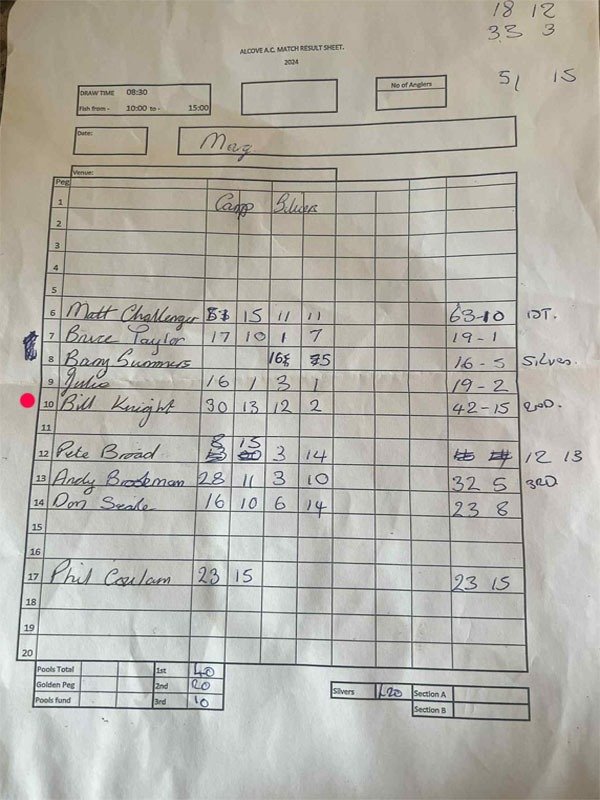 18 12
33 3
51 15
ALCOVE A.C. MATCH RESULT SHEET.
2024
DRAW TIME 08:30
Fish from - 10:00 to - 15:00
No of Anglers
Date:
Venue:
Peg
1 Carp Silvers
2
3
4
5
6 Matt Challenger 15 11 11 63-10 1ST.
7 Bruce Taylor 17 10 1 7 19-1
8 Barry Summers 16 5 16-5 Silvers.
9 Julie 16 1 3 1 19-2
10 Bill Knight 30 13 12 2 42-15 2ND.
11
12 Pete Broad 8 15 3 14 12 13
13 Andy 28 11 3 10 32 5 3RD
14 Don 16 10 6 14 23 8
15
16
17 Phil Coulam 23 15 23 15
18
19
20
Pools Total 1st 40
Golden Peg 2nd 20
Pools fund 3rd 10
Silvers £20 Section A
Section B